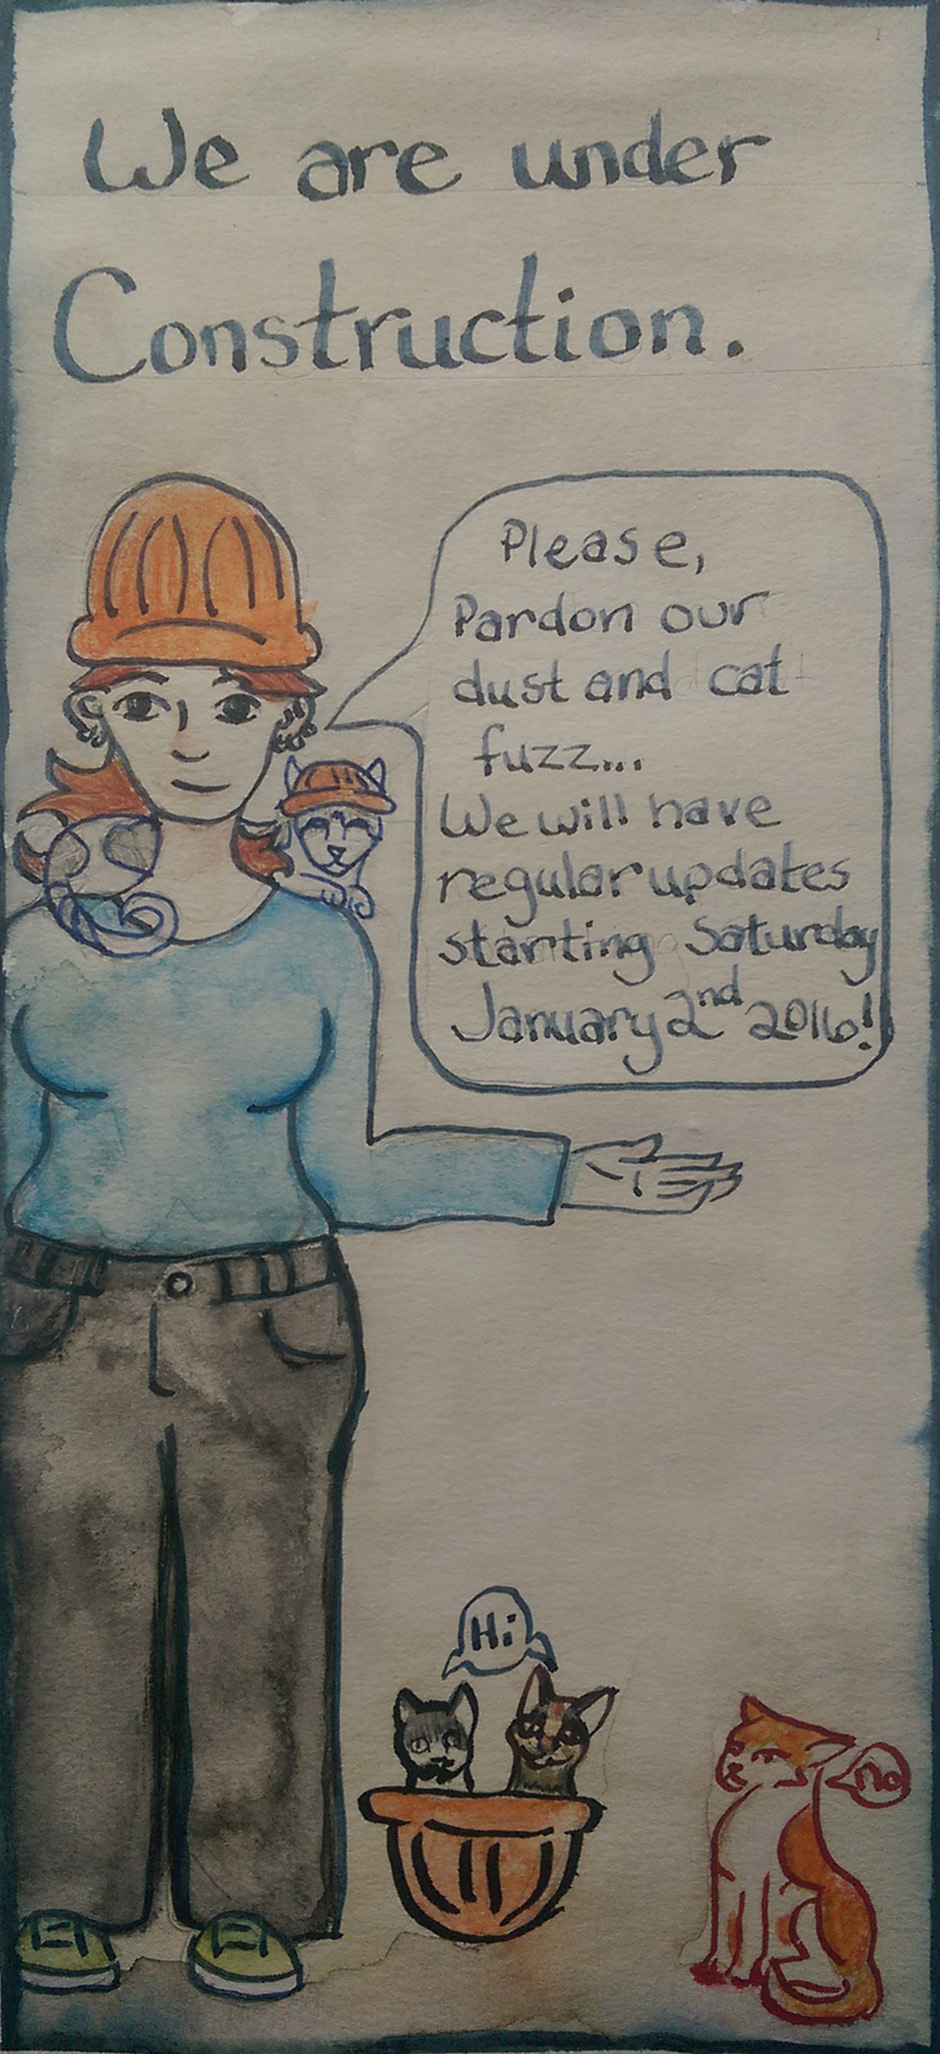 We are under
Construction.
Please,
Pardon our
dust and cat
fuzz...
We will have
regular updates
starting Saturday
January 2nd 2016!
Hi
no